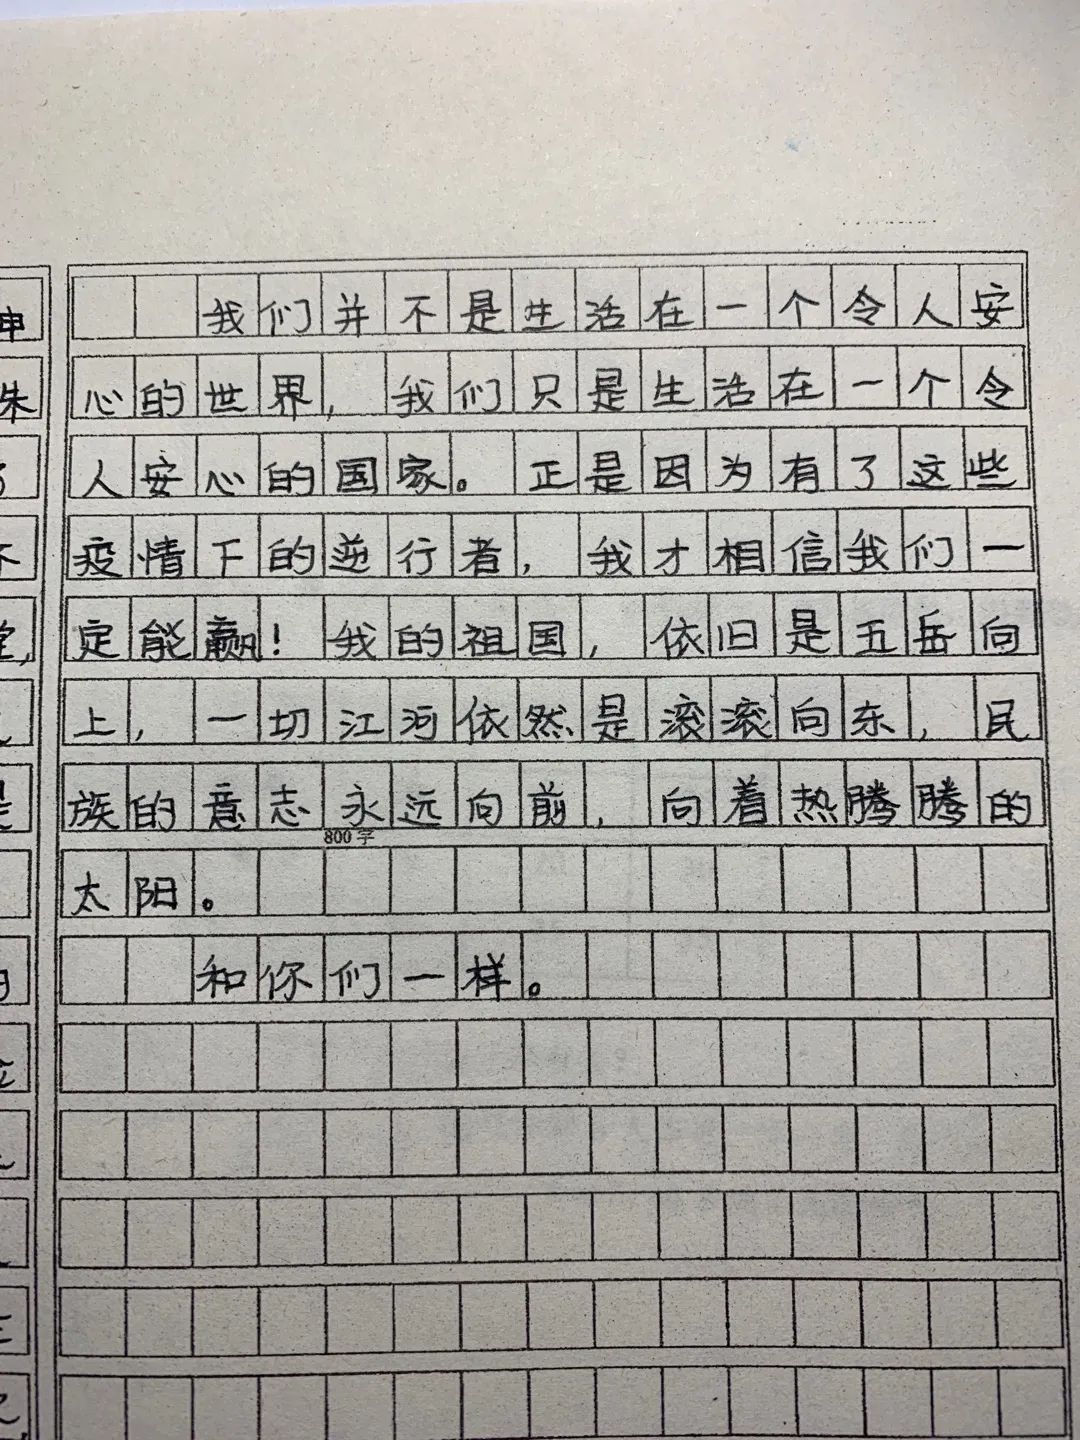 我们并不是生活在一个令人安
心的世界，我们只是生活在一个令
人安心的国家。正是因为有了这些
疫情下的逆行者，我才相信我们一
定能赢！我的祖国，依旧是五岳向
上，一切江河依然是滚滚向东，民
族的意志永远向前，向着热腾腾的
800字
太阳。
和你们一样。